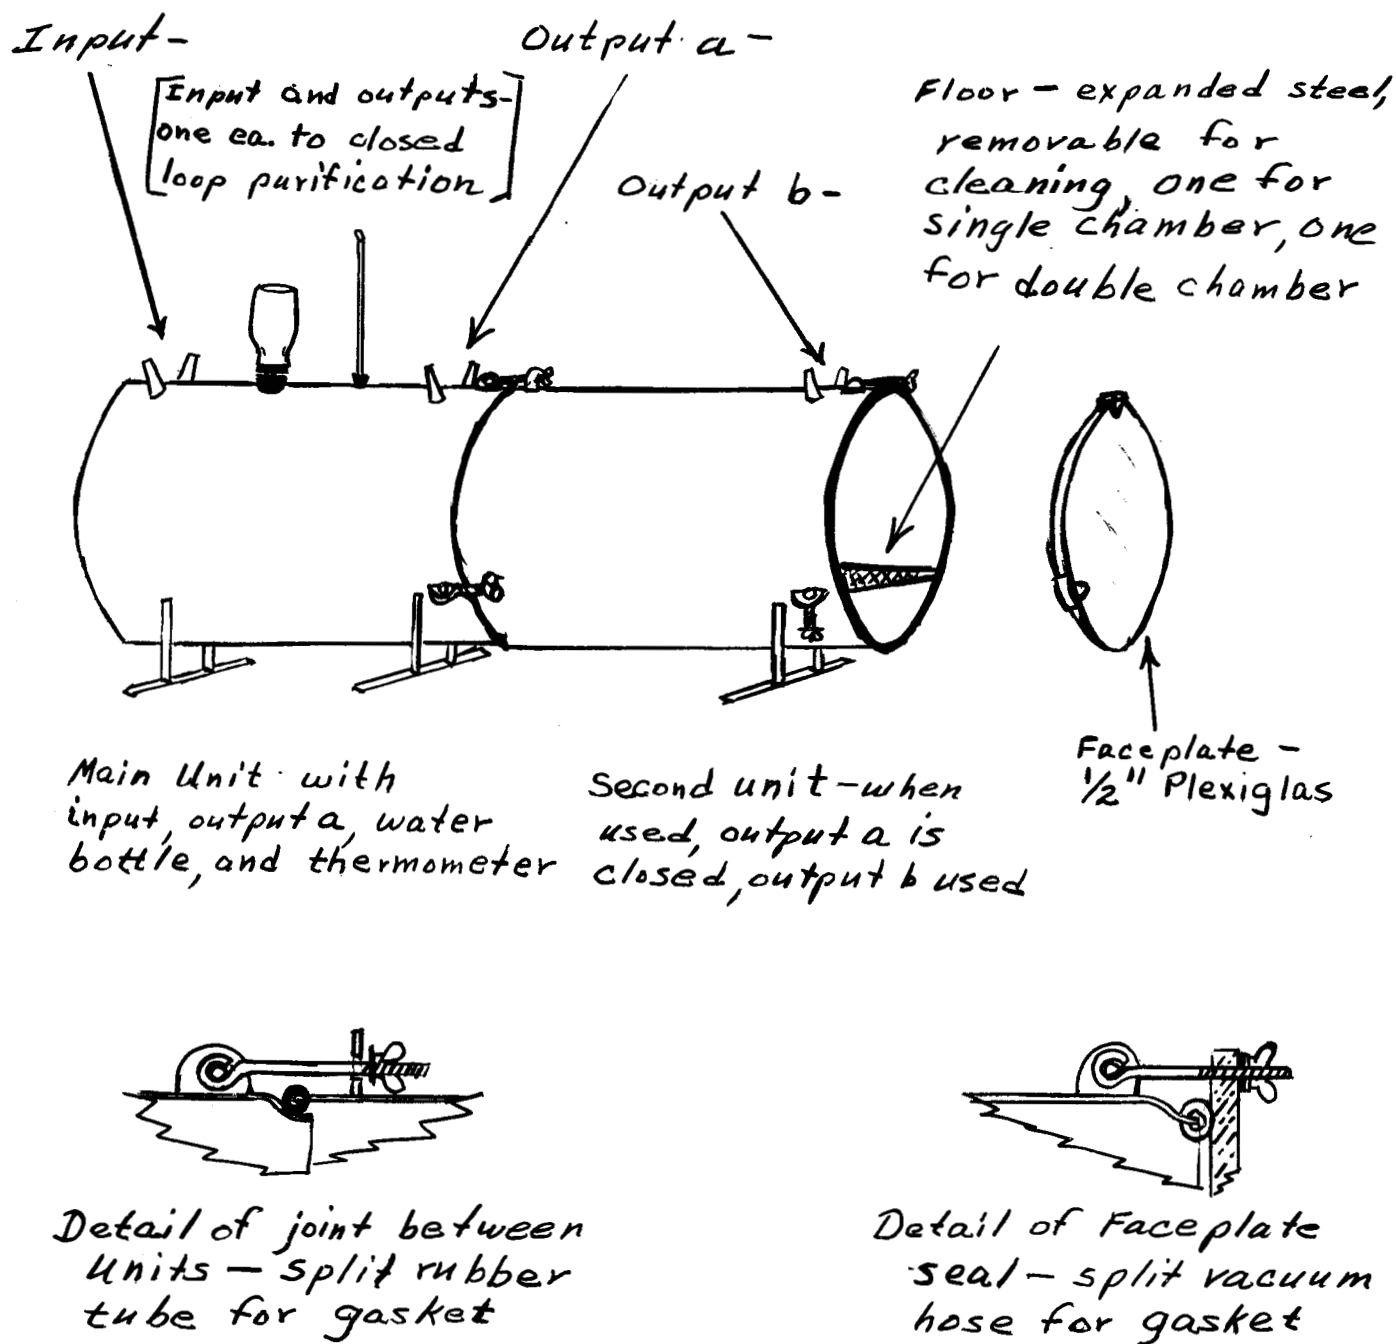 Input-
Output a-
[Input and outputs-
one ea. to closed
loop purification]
Output b-
Floor - expanded steel,
removable for
cleaning, one for
single chamber, one
for double chamber
Main Unit with
input, output a, water
bottle, and thermometer
Second unit-when
used, output a is
closed, output b used
Faceplate -
1/2" Plexiglas
Detail of joint between
Units - split rubber
tube for gasket
Detail of Faceplate
seal - split vacuum
hose for gasket